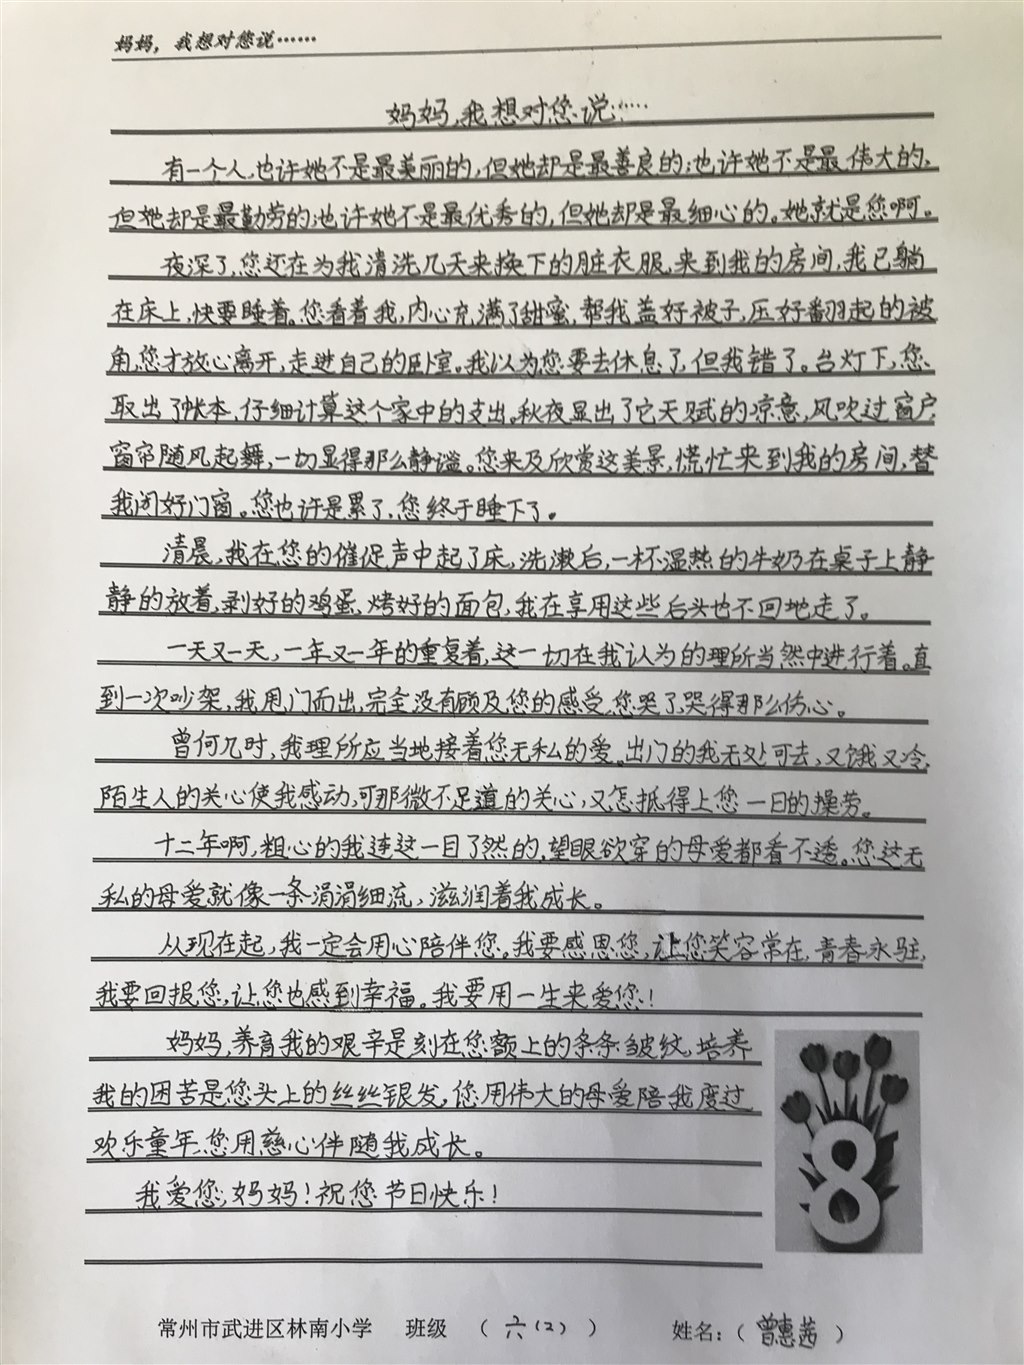 妈妈，我想对您说……
妈妈,我想对您说……
有一个人,也许她不是最美丽的,但她却是最善良的;也许她不是最伟大的,
但她却是最勤劳的;也许她不是最优秀的,但她却是最细心的。她就是您啊。
夜深了,您还在为我清洗几天来换下的脏衣服,来到我的房间,我已躺
在床上,快要睡着。您看着我,内心充满了甜蜜,帮我盖好被子,压好翻起的被
角,您才放心离开,走进自己的卧室。我以为您要去休息了,但我错了。台灯下,您
取出了帐本,仔细计算这个家中的支出。秋夜显出了它天赋的凉意,风吹过窗户,
窗帘随风起舞,一切显得那么静谧。您来及欣赏这美景,慌忙来到我的房间,替
我闭好门窗。您也许是累了,您终于睡下了。
清晨,我在您的催促声中起了床,洗漱后,一杯温热的牛奶在桌子上静
静的放着,剥好的鸡蛋,烤好的面包,我在享用这些后头也不回地走了。
一天又一天,一年又一年的重复着,这一切在我认为的理所当然中进行着。直
到一次吵架,我甩门而出,完全没有顾及您的感受,您哭了,哭得那么伤心。
曾何几时,我理所应当地接着您无私的爱。出门的我无处可去,又饿又冷,
陌生人的关心使我感动,可那微不足道的关心,又怎抵得上您一日的操劳。
十二年啊,粗心的我连这一目了然的,望眼欲穿的母爱都看不透。您这无
私的母爱就像一条涓涓细流,滋润着我成长。
从现在起,我一定会用心陪伴您。我要感恩您,让您笑容常在,青春永驻,
我要回报您,让您也感到幸福。我要用一生来爱您!
妈妈,养育我的艰辛是刻在您额上的条条皱纹,培养
我的困苦是您头上的丝丝银发,您用伟大的母爱陪我度过
欢乐童年,您用慈心伴随我成长。
我爱您,妈妈!祝您节日快乐!
8
常州市武进区林南小学 班级 （六(2)） 姓名：（曾惠茜）